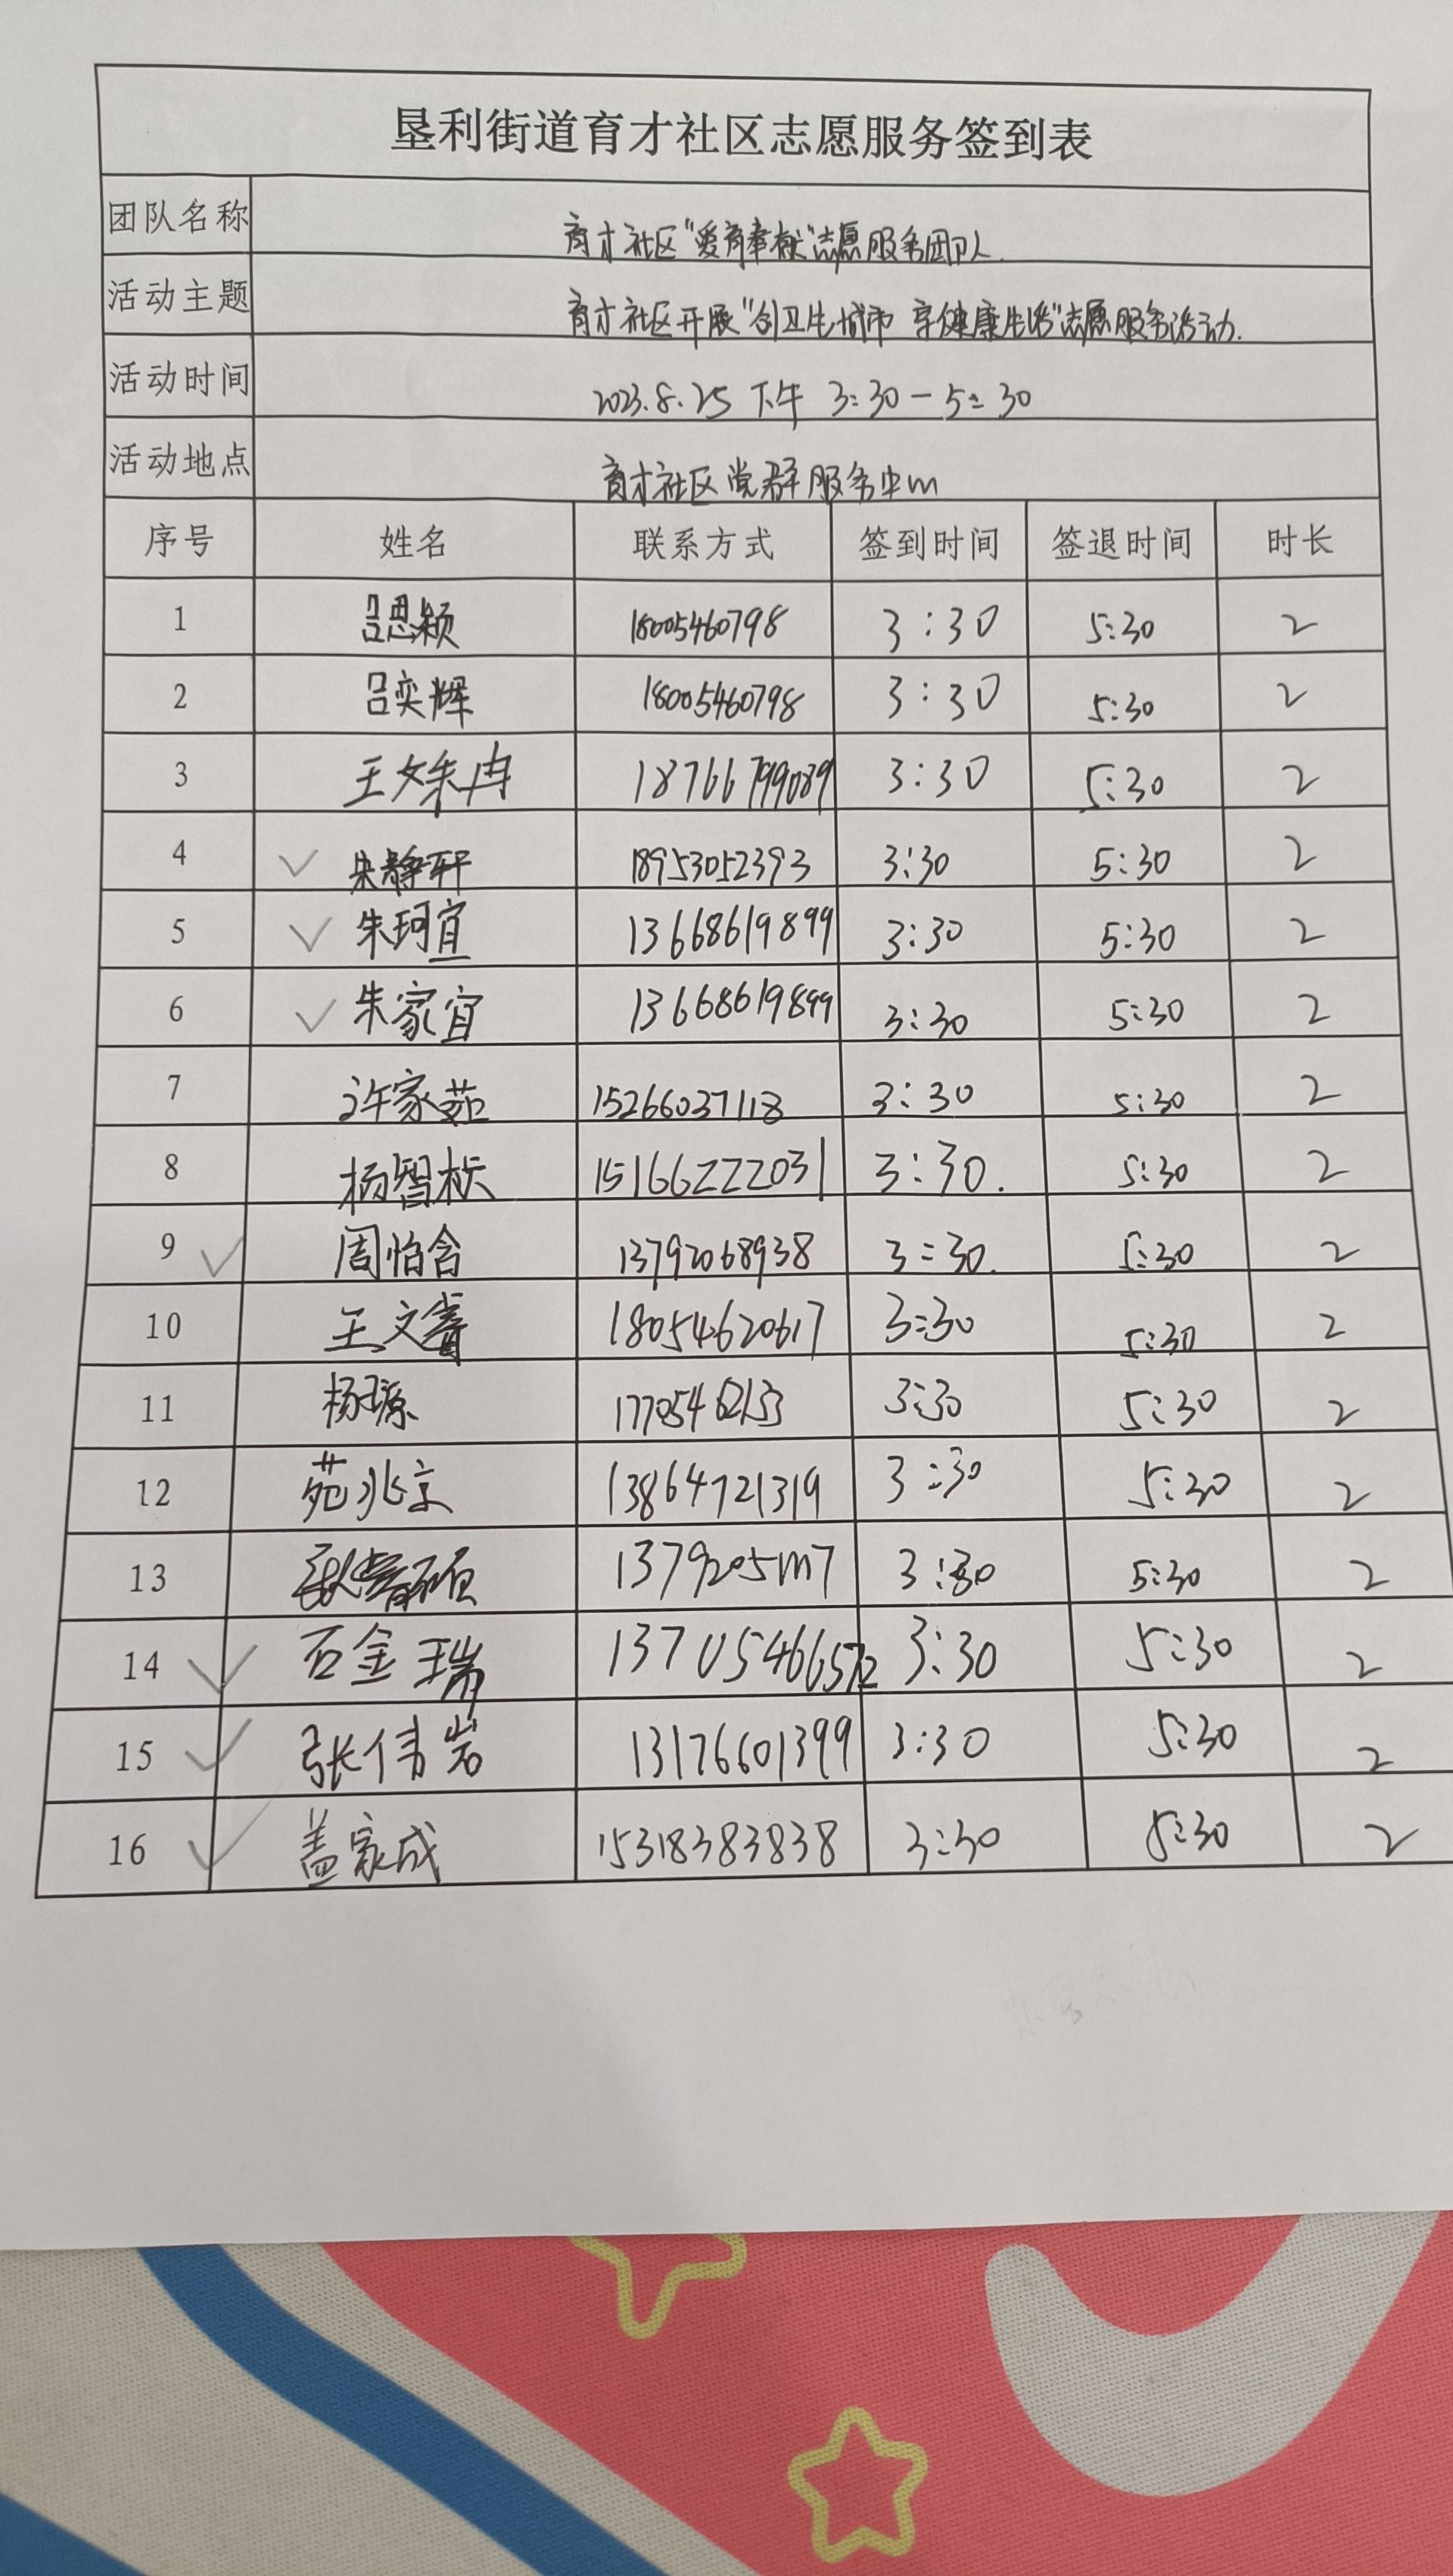 垦利街道育才社区志愿服务签到表
团队名称 育才社区"爱育奉献"志愿服务团队.
活动主题 育才社区开展"创卫生城市 享健康生活"志愿服务活动.
活动时间 2023.8.25 下午 3:30-5:30
活动地点 育才社区党群服务中心
序号 姓名 联系方式 签到时间 签退时间 时长
1 吕思颖 18005460798 3:30 5:30 2
2 吕奕辉 18005460798 3:30 5:30 2
3 王姝冉 18766799089 3:30 5:30 2
4 朱静轩 18953052393 3:30 5:30 2
5 朱珂宜 13668619899 3:30 5:30 2
6 朱家宜 13668619899 3:30 5:30 2
7 许家茹 15266037118 3:30 5:30 2
8 杨智栋 15166222031 3:30. 5:30 2
9 周怡含 13792068938 3:30. 5:30 2
10 王文睿 18054620617 3:30 5:30 2
11 杨璟 3:30 5:30 2
12 苑兆京 13864721319 3:30 5:30 2
13 3:30 5:30 2
14 石金瑞 13705466572 3:30 5:30 2
15 张伟岩 13176601399 3:30 5:30 2
16 盖家成 15318383838 3:30 5:30 2